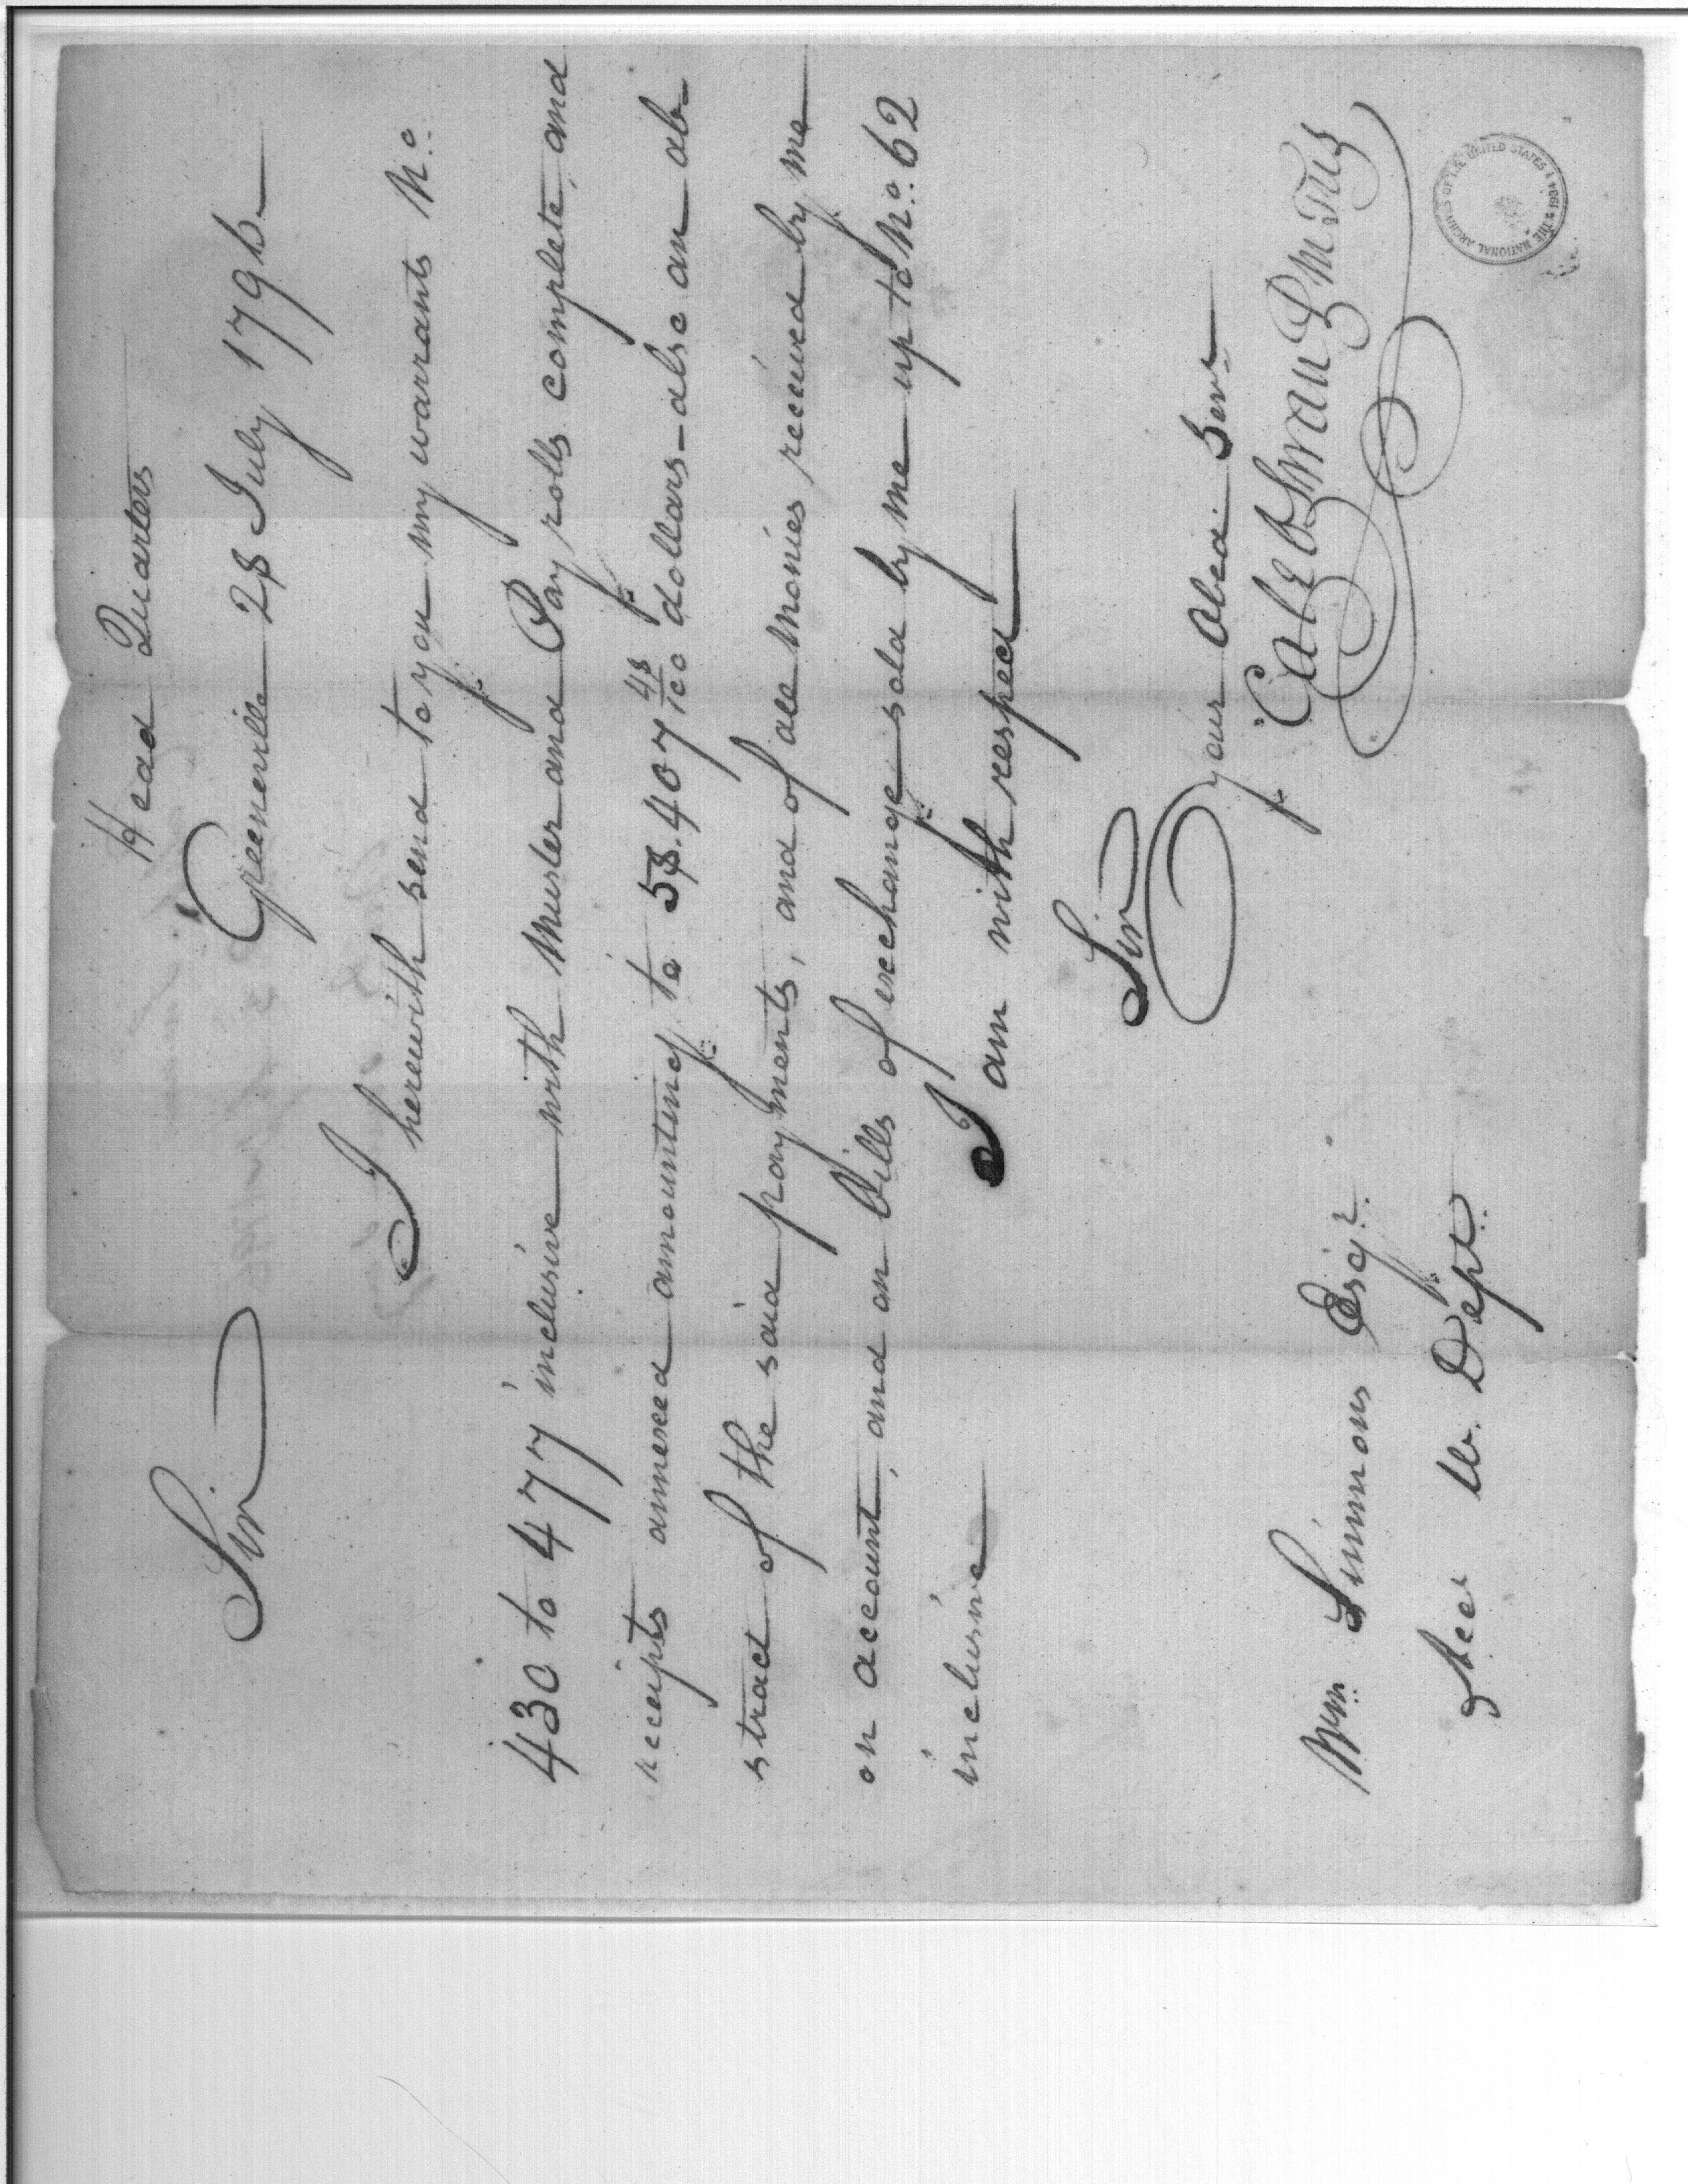 Head Quarters
Greeneville 28 July 1796
Sir
I herewith send to you my warrants No.
430 to 477 inclusive with Muster and Pay rolls complete, and
receipts annexed amounting to 58.407 48/100 dollars - also an ab
stract of the said payments, and of all monies received by me
on account, and on bills of exchange sold by me up to No. 62
inclusive
I am with respect
Sir
your Obed. Servt
Caleb Swan P M Trps
Wm. Simmons Esqr.
Acct W. Dept.
NATIONAL ARCHIVES OF THE UNITED STATES
THE 1934